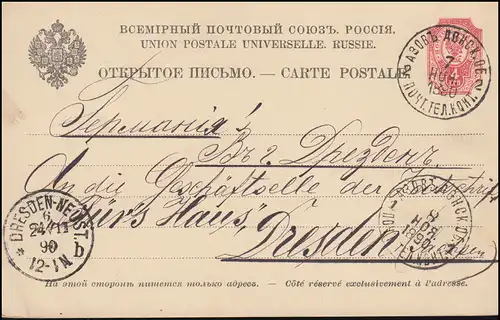 ВСЕМІРНЫЙ ПОЧТОВЫЙ СОЮЗЪ. РОССІЯ.
UNION POSTALE UNIVERSELLE. RUSSIE.
ОТКРЫТОЕ ПИСЬМО. — CARTE POSTALE.
АЗОВЪ ДОНСК. ОБ.
7
НОЯ
1890
ПОЧТ. ТЕЛ. КОНТ.
Германія
Въ Дрезденъ
An die Geschäftstelle der Zeitschrift
"Fürs Haus", Dresden
DRESDEN-NEUST.
6
24/11
90
12-1N
b
8
НОЯ
1890
На этой сторонѣ пишется только адресъ. — Côté réservé exclusivement à l'adresse.